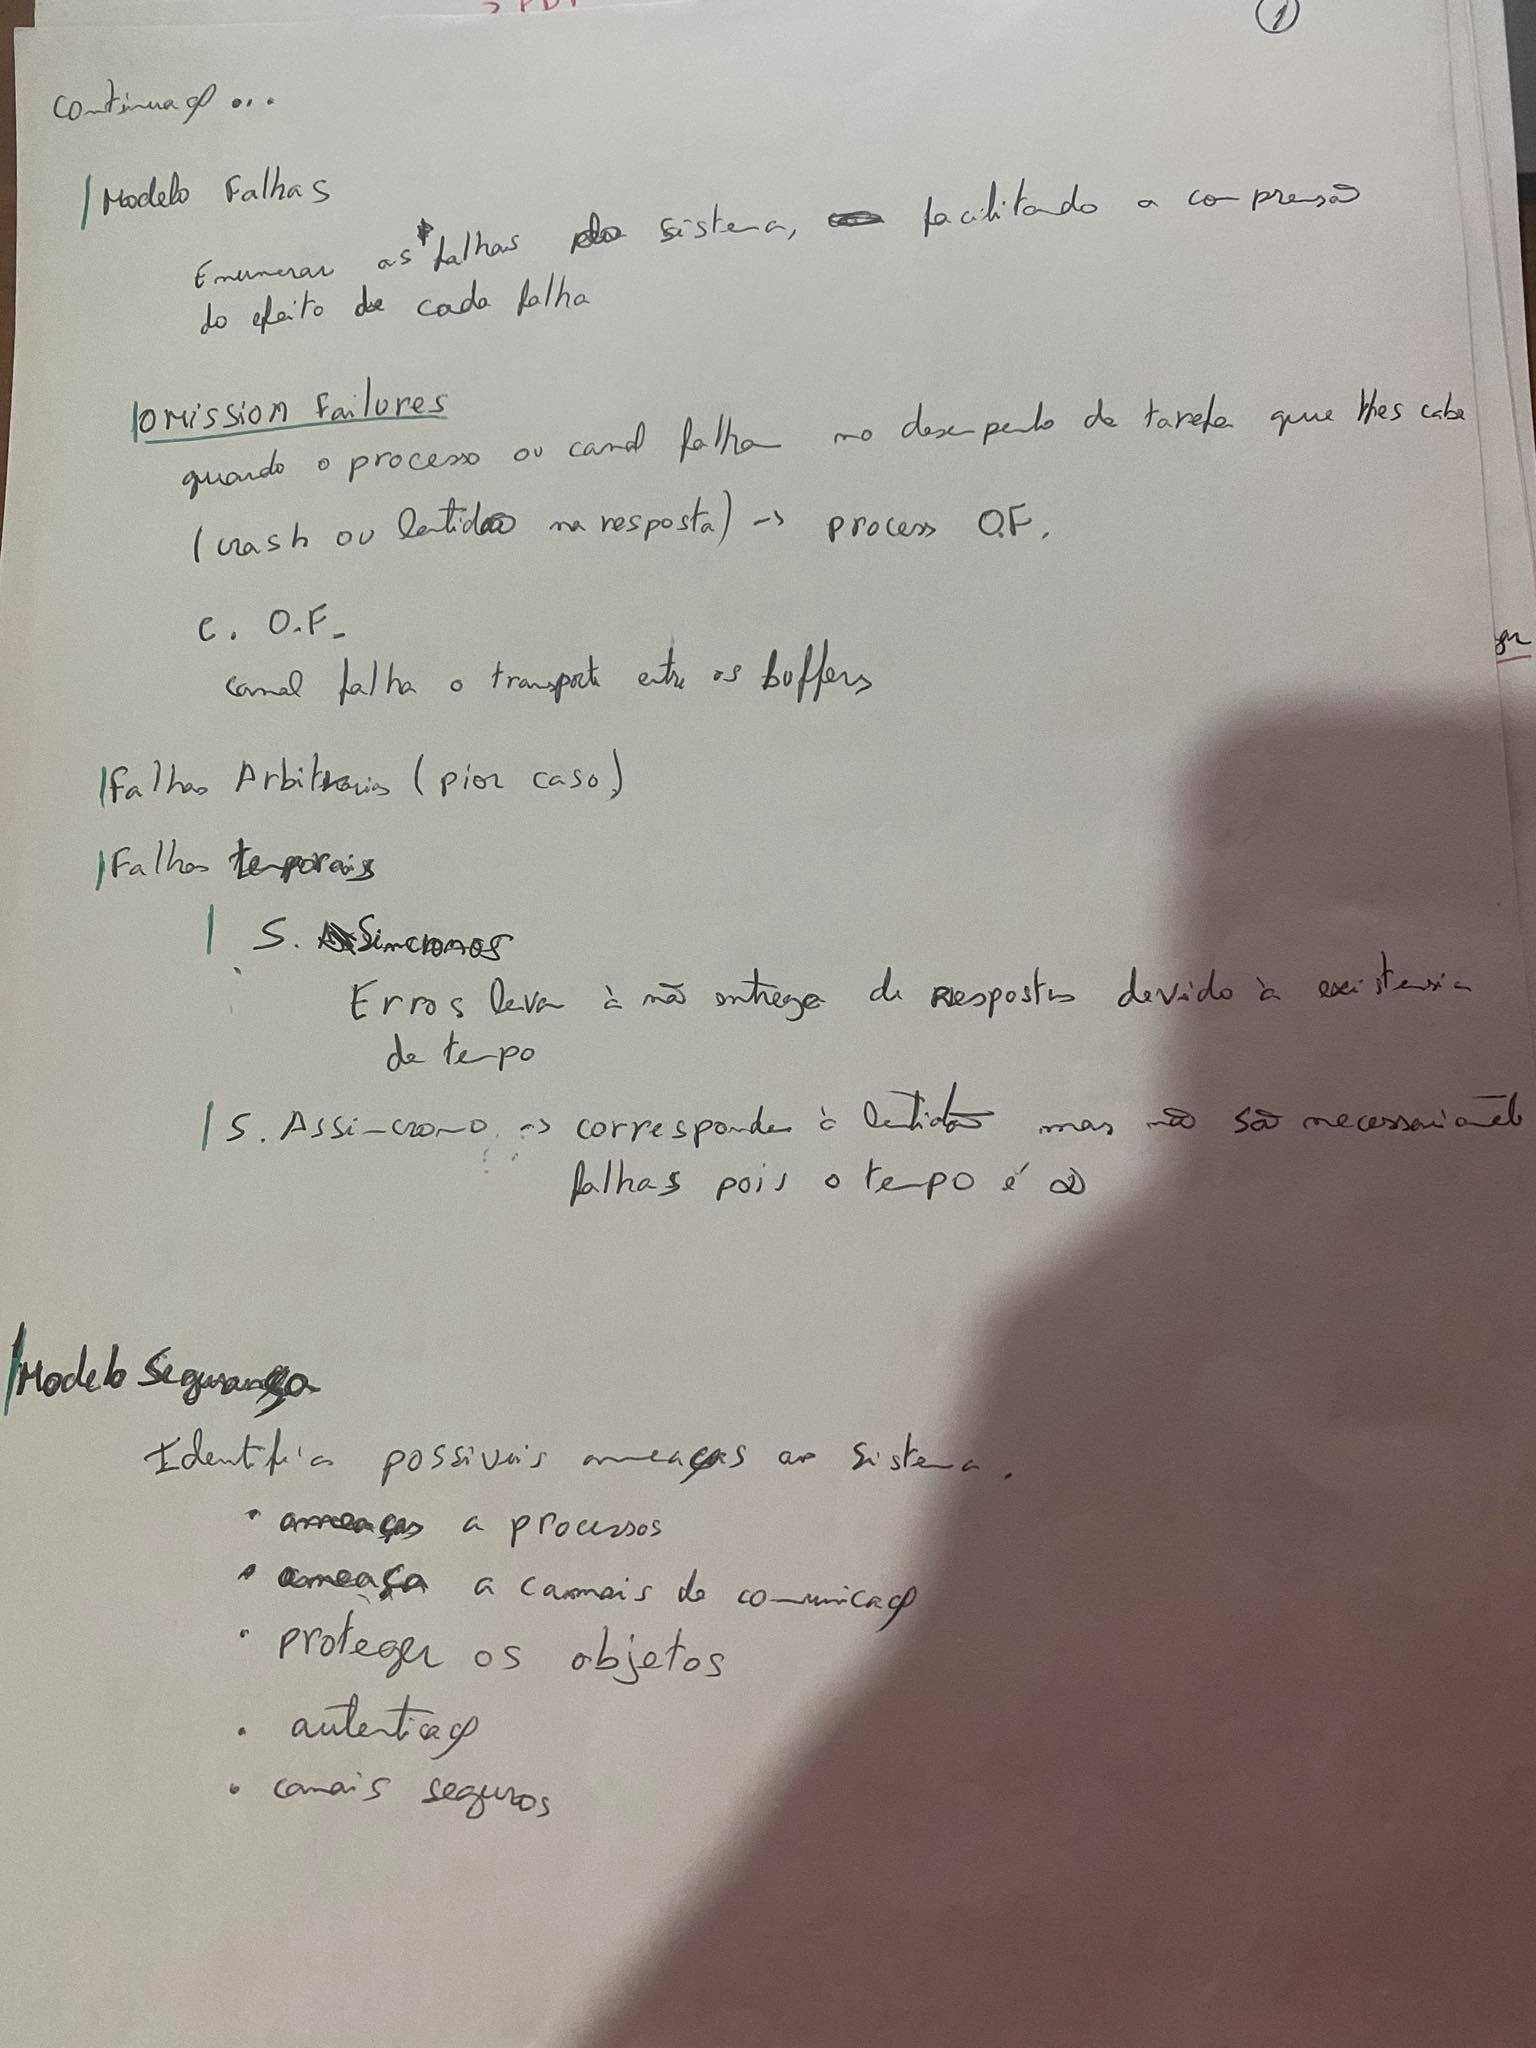 > PDF
1
continuaçõ...
Modelo Falhas
Enumerar as falhas do sistema, facilitando a compreensão
do efeito de cada falha
Omission Failures
quando o processo ou canal falha no desempenho da tarefa que lhes cabe
(crash ou lentidão na resposta) -> process O.F.
C. O.F.
canal falha o transporte entre os buffers
Falhas Arbitrarias (pior caso)
Falhas temporais
S. Sincronos
Erros leva à não entrega de respostas devido à existencia
de tempo
S. Assincrono -> corresponder à lentidão mas não são necessariamente
falhas pois o tempo é ∞
Modelo Segurança
Identifica possiveis ameaças ao sistema.
• ameaças a processos
• ameaça a canais de comunicaçõ
• proteger os objetos
• autenticaçõ
• canais seguros